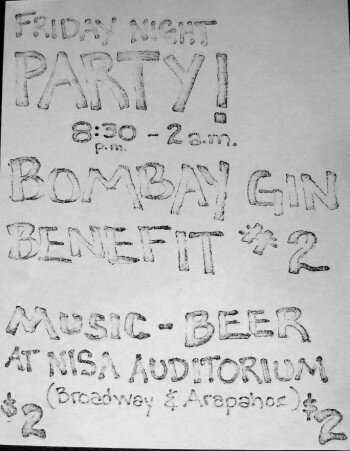 FRIDAY NIGHT
PARTY!
8:30 - 2 a.m.
p.m.
BOMBAY GIN
BENEFIT #2
MUSIC - BEER
AT NISA AUDITORIUM
(Broadway & Arapahoe)
$2 $2